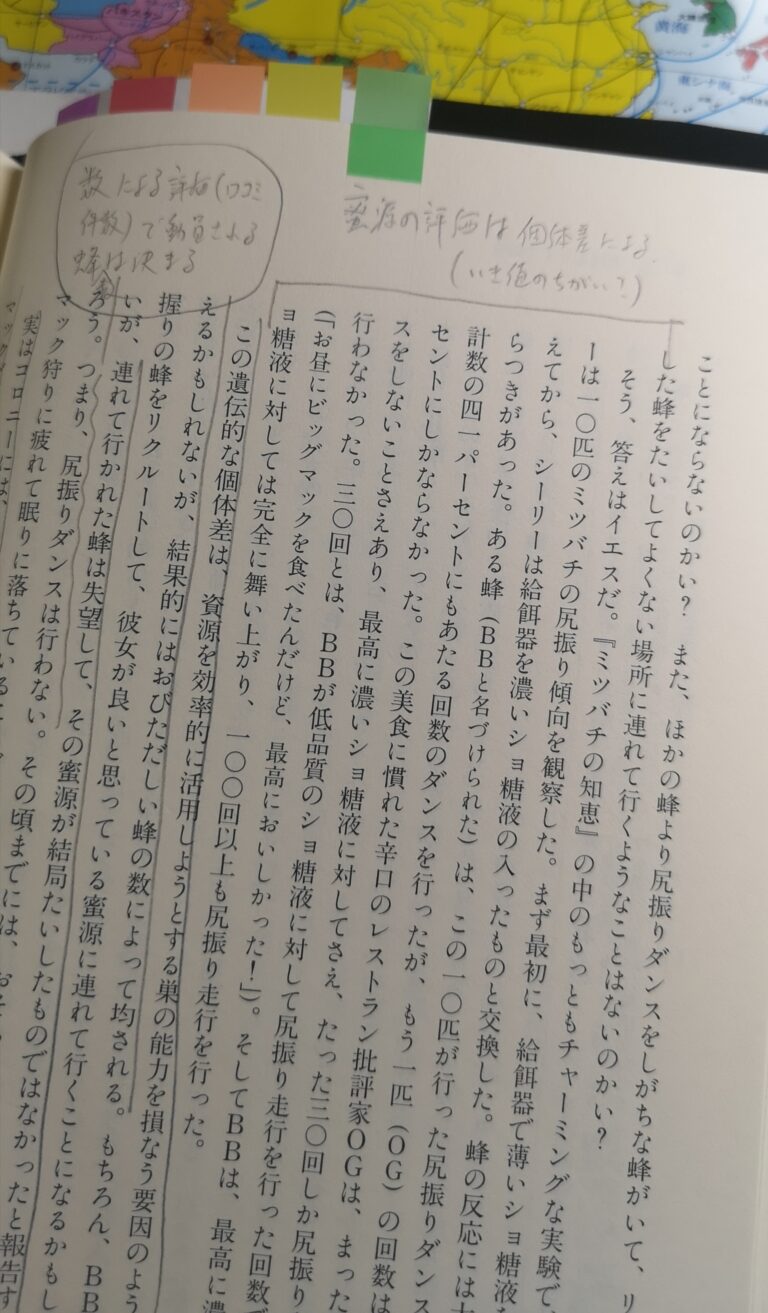 黄海
東シナ海
蜜源の評価は個体差による。
(いき値のちがい？)
数による評価(口コミ
件数)で動員される
蜂は決まる
ことにならないのかい？　また、ほかの蜂より尻振りダンスをしがちな蜂がいて、リ
した蜂をたいしてよくない場所に連れて行くようなことはないのかい？
そう、答えはイエスだ。『ミツバチの知恵』の中のもっともチャーミングな実験で、
ーは一〇匹のミツバチの尻振り傾向を観察した。まず最初に、給餌器で薄いショ糖液を
えてから、シーリーは給餌器を濃いショ糖液の入ったものと交換した。蜂の反応には大
らつきがあった。ある蜂（ＢＢと名づけられた）は、この一〇匹が行った尻振りダンス
計数の四一パーセントにもあたる回数のダンスを行ったが、もう一匹（ＯＧ）の回数は
セントにしかならなかった。この美食に慣れた辛口のレストラン批評家ＯＧは、まった
スをしないことさえあり、最高に濃いショ糖液に対してさえ、たった三〇回しか尻振り
行わなかった。三〇回とは、ＢＢが低品質のショ糖液に対して尻振り走行を行った回数で
（「お昼にビッグマックを食べたんだけど、最高においしかった！」）。そしてＢＢは、最高に濃
ョ糖液に対しては完全に舞い上がり、一〇〇回以上も尻振り走行を行った。
この遺伝的な個体差は、資源を効率的に活用しようとする巣の能力を損なう要因のよう
えるかもしれないが、結果的にはおびただしい蜂の数によって均される。もちろん、ＢＢ
握りの蜂をリクルートして、彼女が良いと思っている蜜源に連れて行くことになるかもし
いが、連れて行かれた蜂は失望して、その蜜源が結局たいしたものではなかったと報告す
ろう。つまり、尻振りダンスは行わない。その頃までには、おそ
マック狩りに疲れて眠りに落ちている
実はコロニーには、
マック